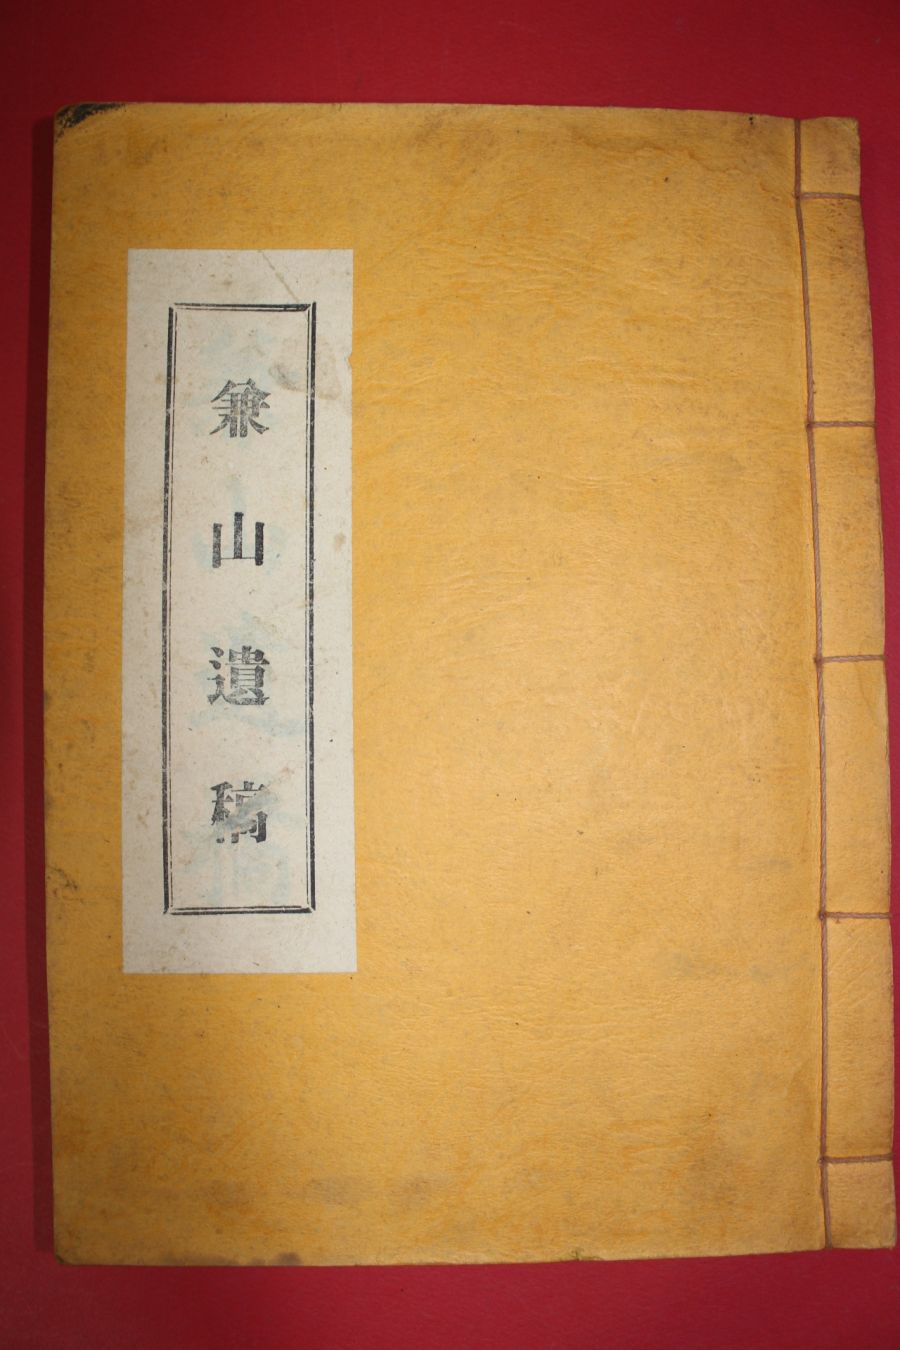 兼山遺稿